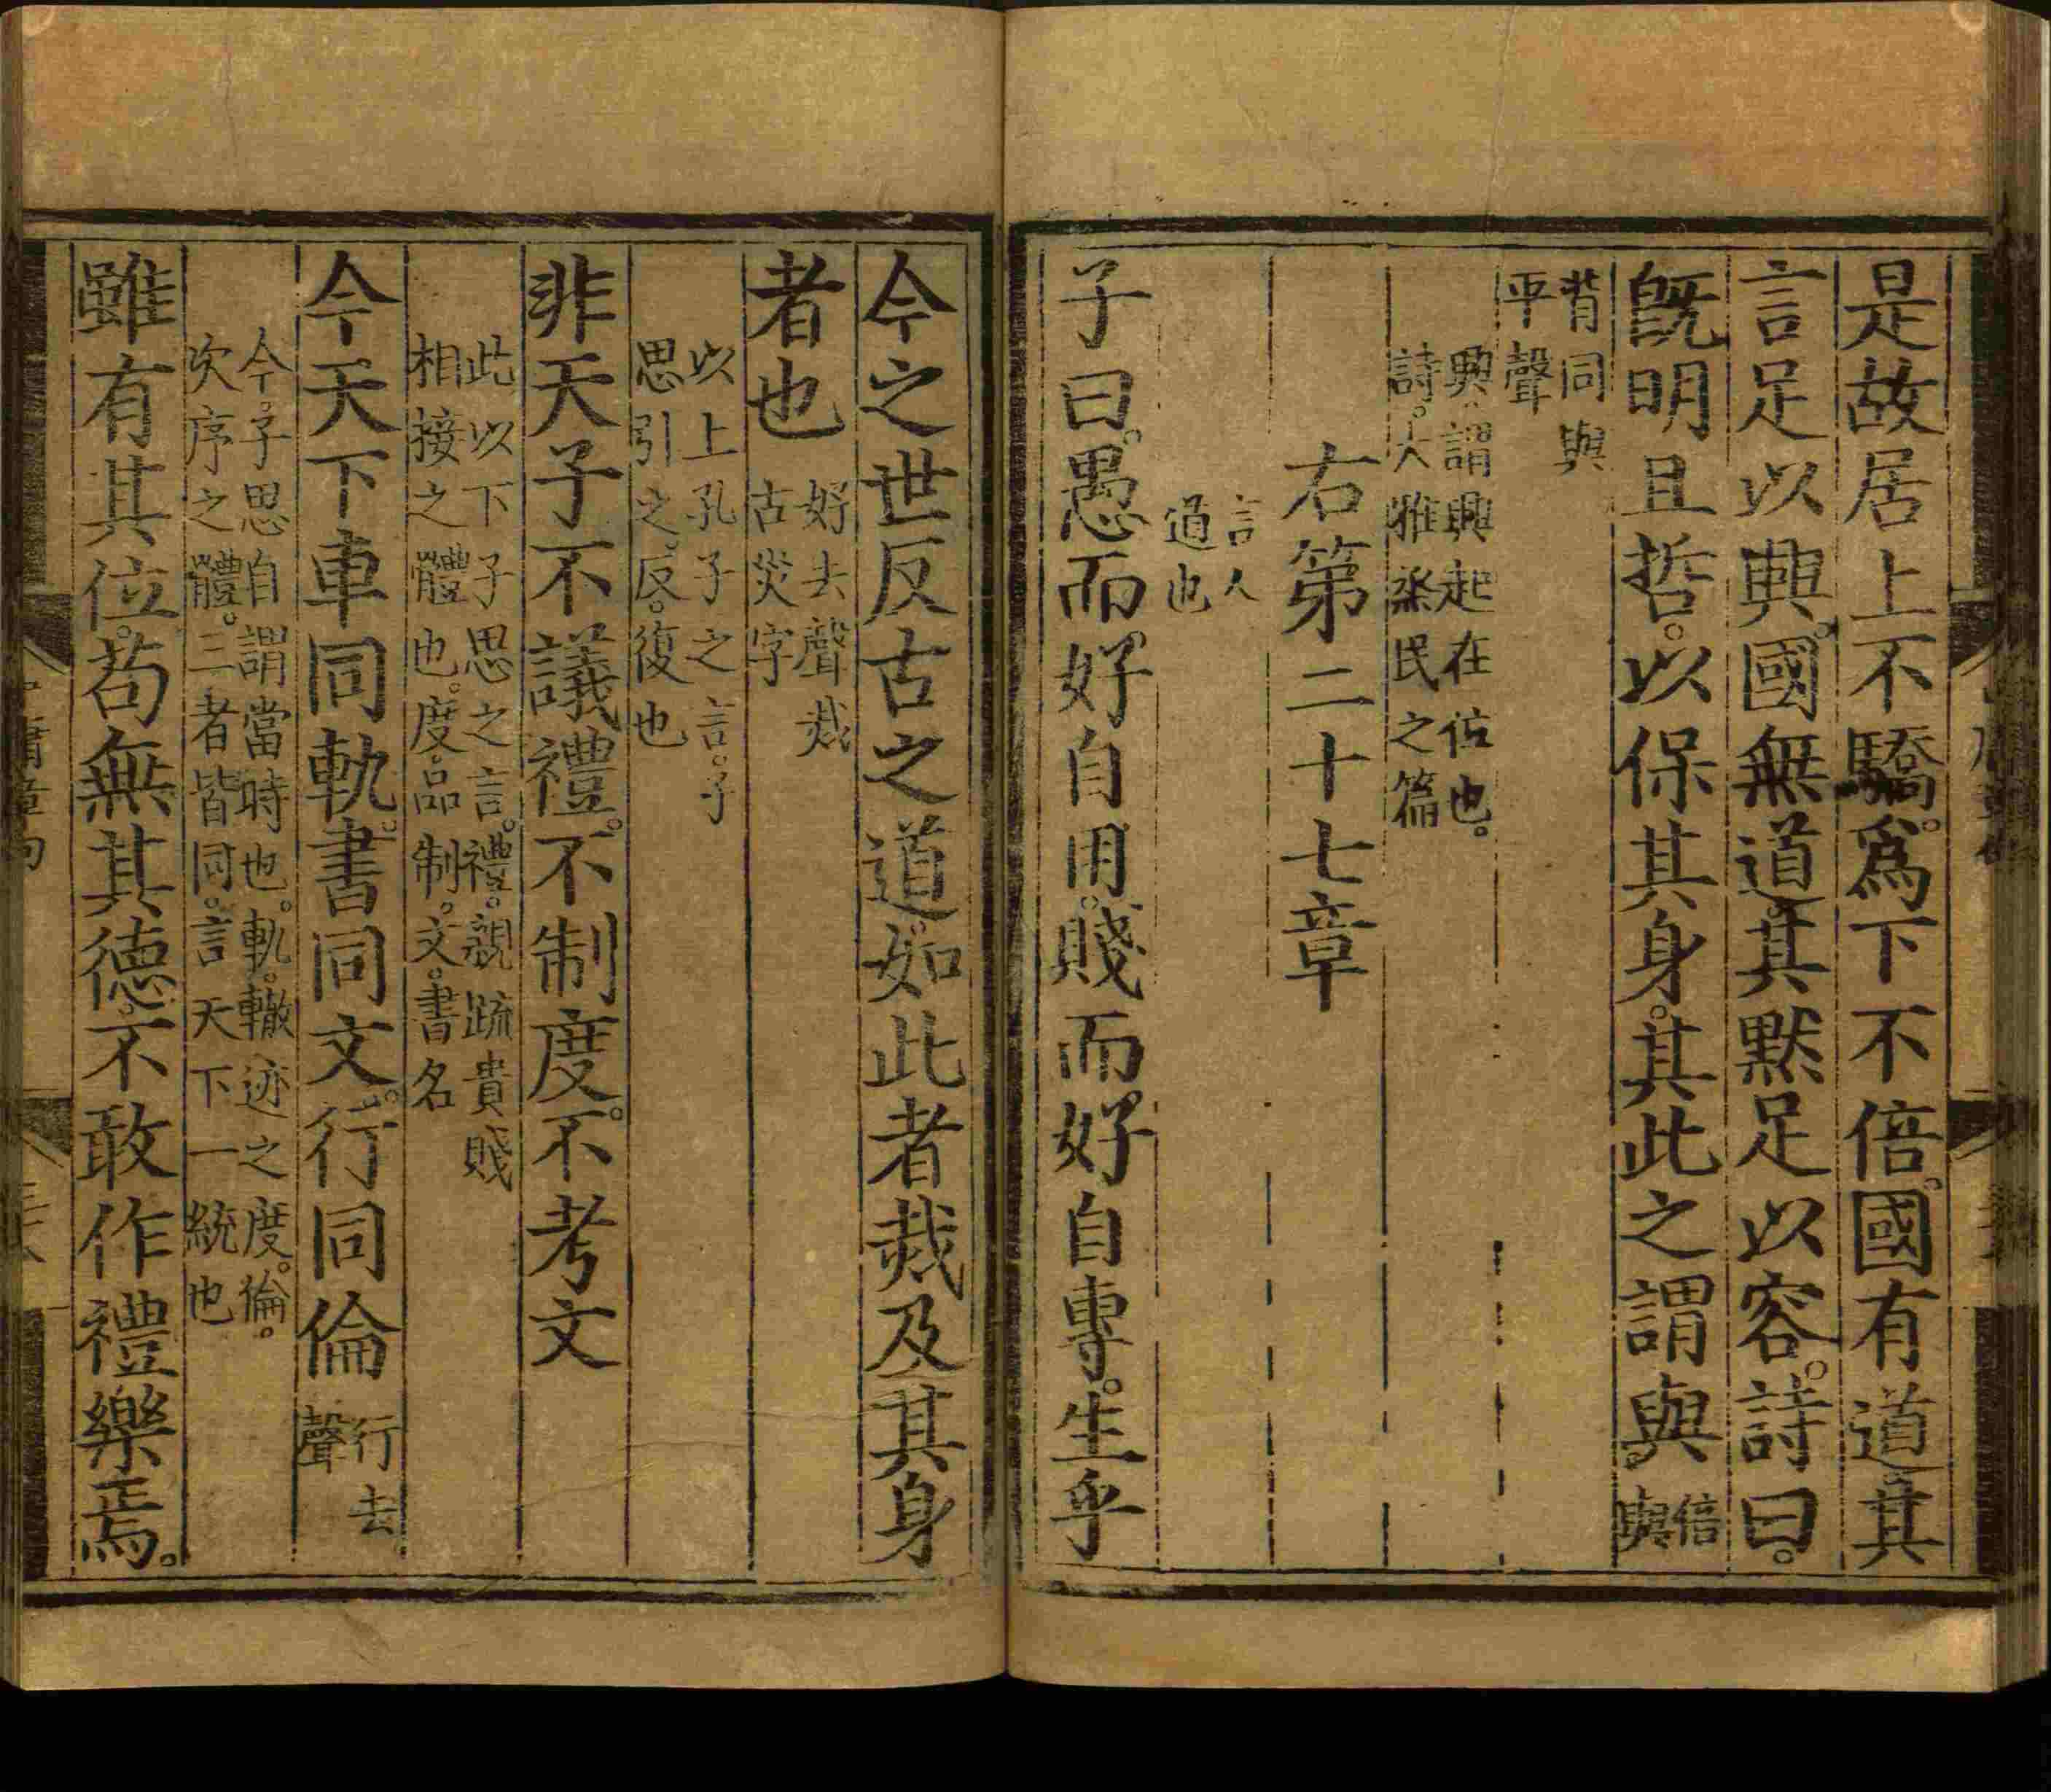 是故居上不驕。爲下不倍。國有道其
言足以興。國無道。其默足以容。詩曰。
旣明且哲。以保其身。其此之謂與倍與
背同與
平聲
興。謂興起在位也。
詩。大雅烝民之篇
右第二十七章
言人
道也
子曰。愚而好自用。賤而好自專。生乎
今之世反古之道。如此者烖及其身
者也好去聲烖
古災字
以上孔子之言。子
思引之。反。復也
非天子不議禮。不制度。不考文
此以下子思之言。禮。親疏貴賤
相接之體也。度。品制。文。書名
今天下車同軌。書同文。行同倫行去聲
今。子思自謂當時也。軌。轍迹之度。倫。
次序之體。三者皆同。言天下一統也
雖有其位。苟無其德。不敢作禮樂焉。